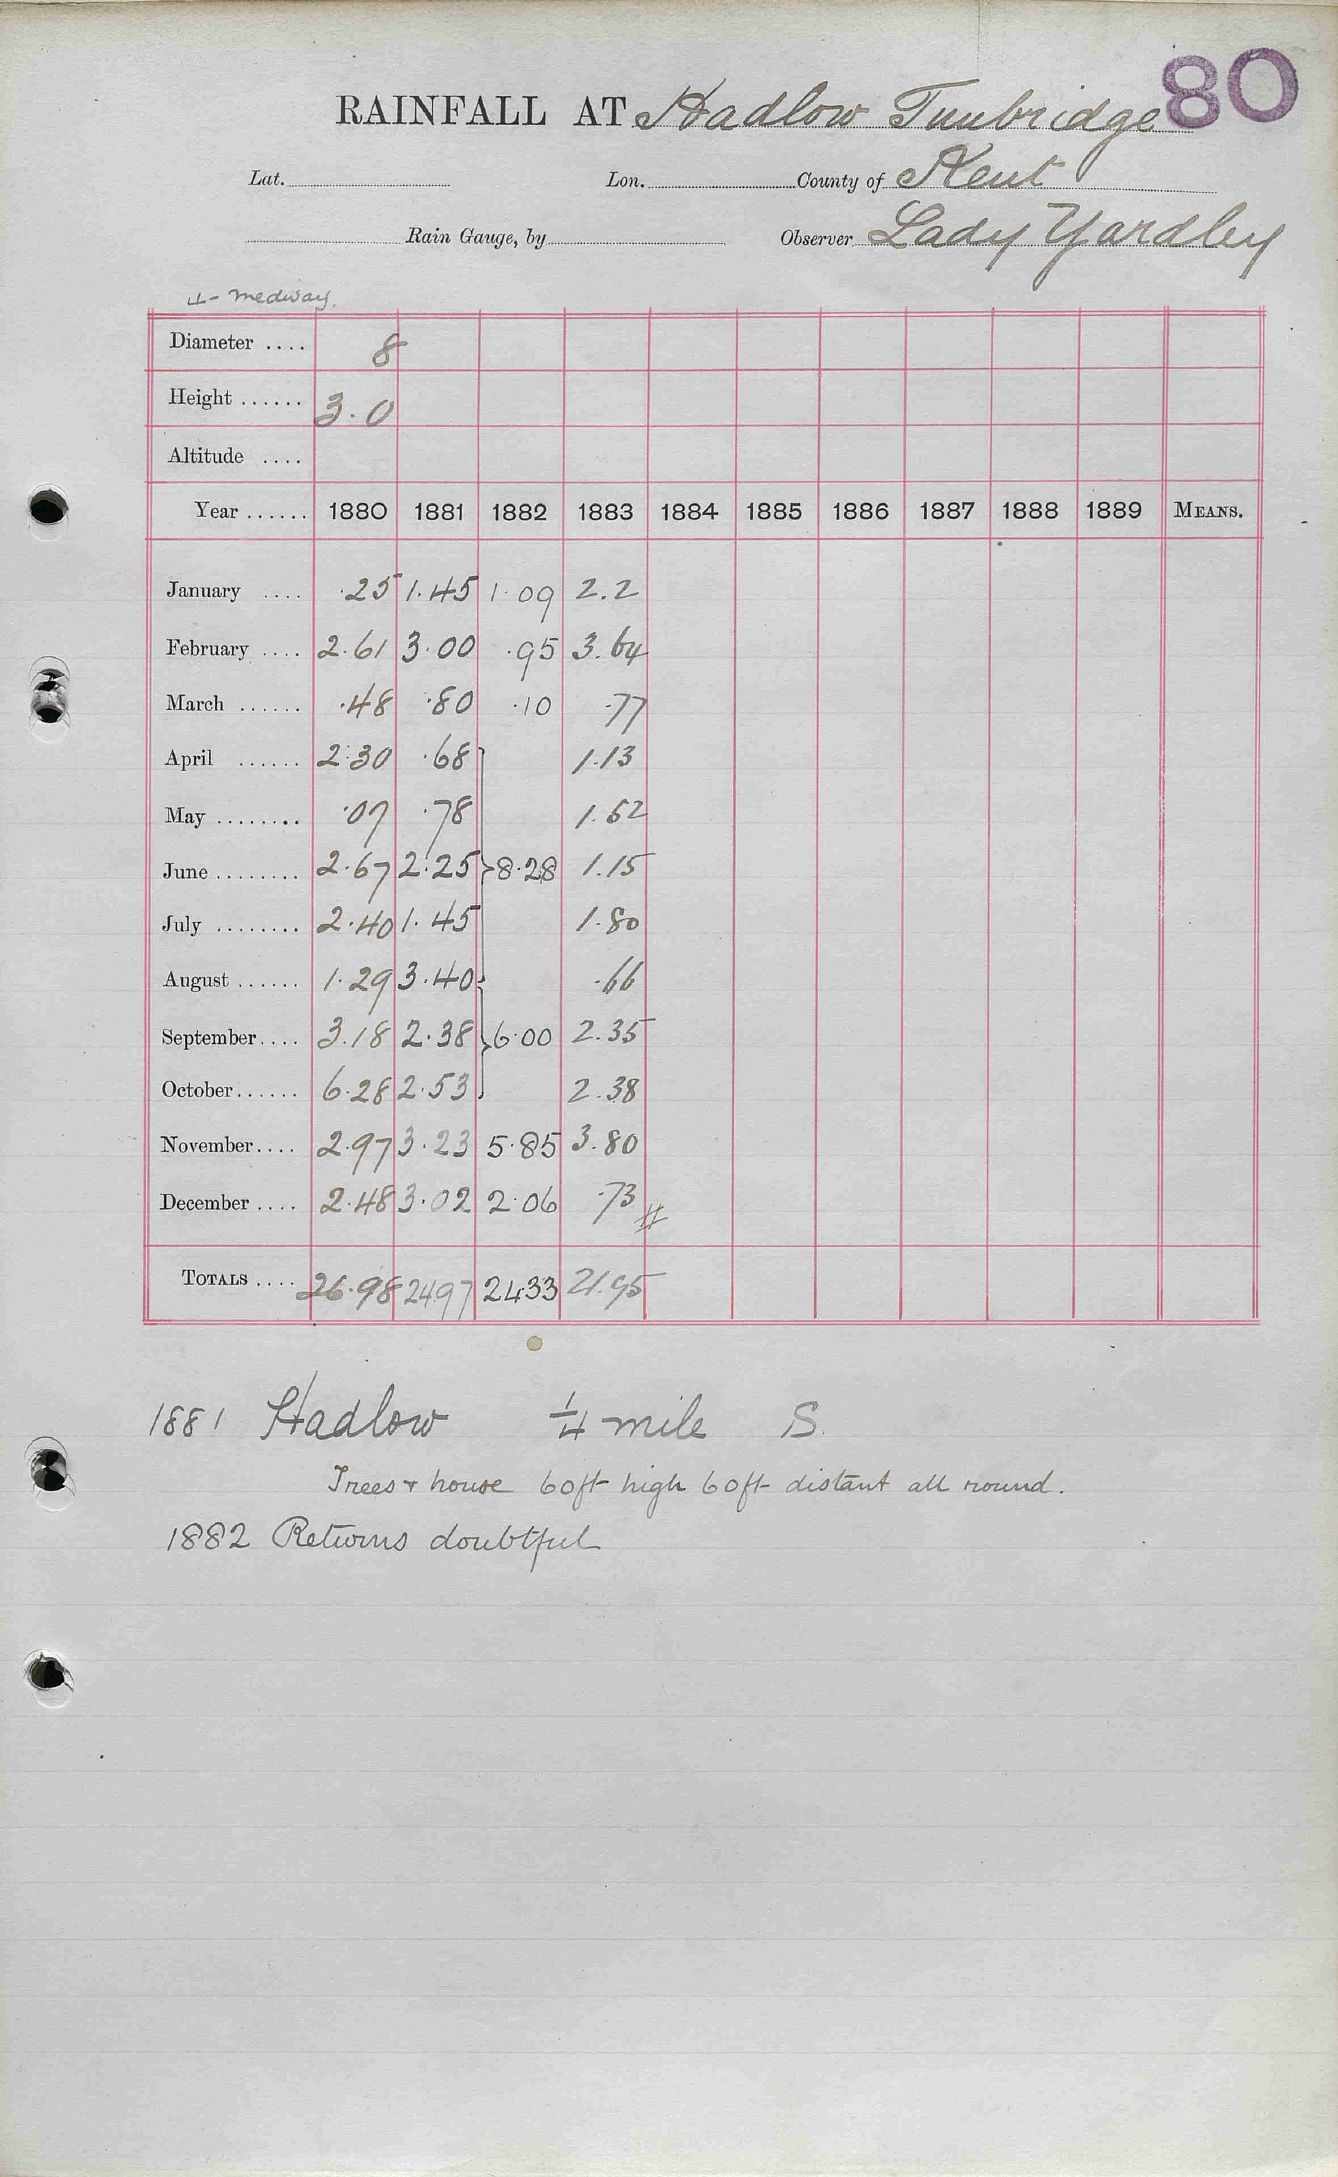 80
RAINFALL AT Hadlow Tunbridge
Lat. Lon. County of Kent
Rain Gauge, by Observer Lady Yardley
4- Medway.
Diameter .... 8
Height ...... 3.0
Altitude ....
Year ...... 1880 1881 1882 1883 1884 1885 1886 1887 1888 1889 MEANS.
January .... .25 1.45 1.09 2.2
February .... 2.61 3.00 .95 3.64
March ...... .48 .80 .10 .77
April ...... 2.30 .68 1.13
May ........ .07 .78 1.52
June ........ 2.67 2.25 }8.28 1.15
July ........ 2.40 1.45 1.80
August ...... 1.29 3.40 .66
September.... 3.18 2.38 }6.00 2.35
October...... 6.28 2.53 2.38
November.... 2.97 3.23 5.85 3.80
December .... 2.48 3.02 2.06 .73 #
TOTALS .... 26.98 24.97 24.33 21.95
1881 Hadlow 1/4 mile S.
Trees & house 60ft high 60ft distant all round.
1882 Returns doubtful